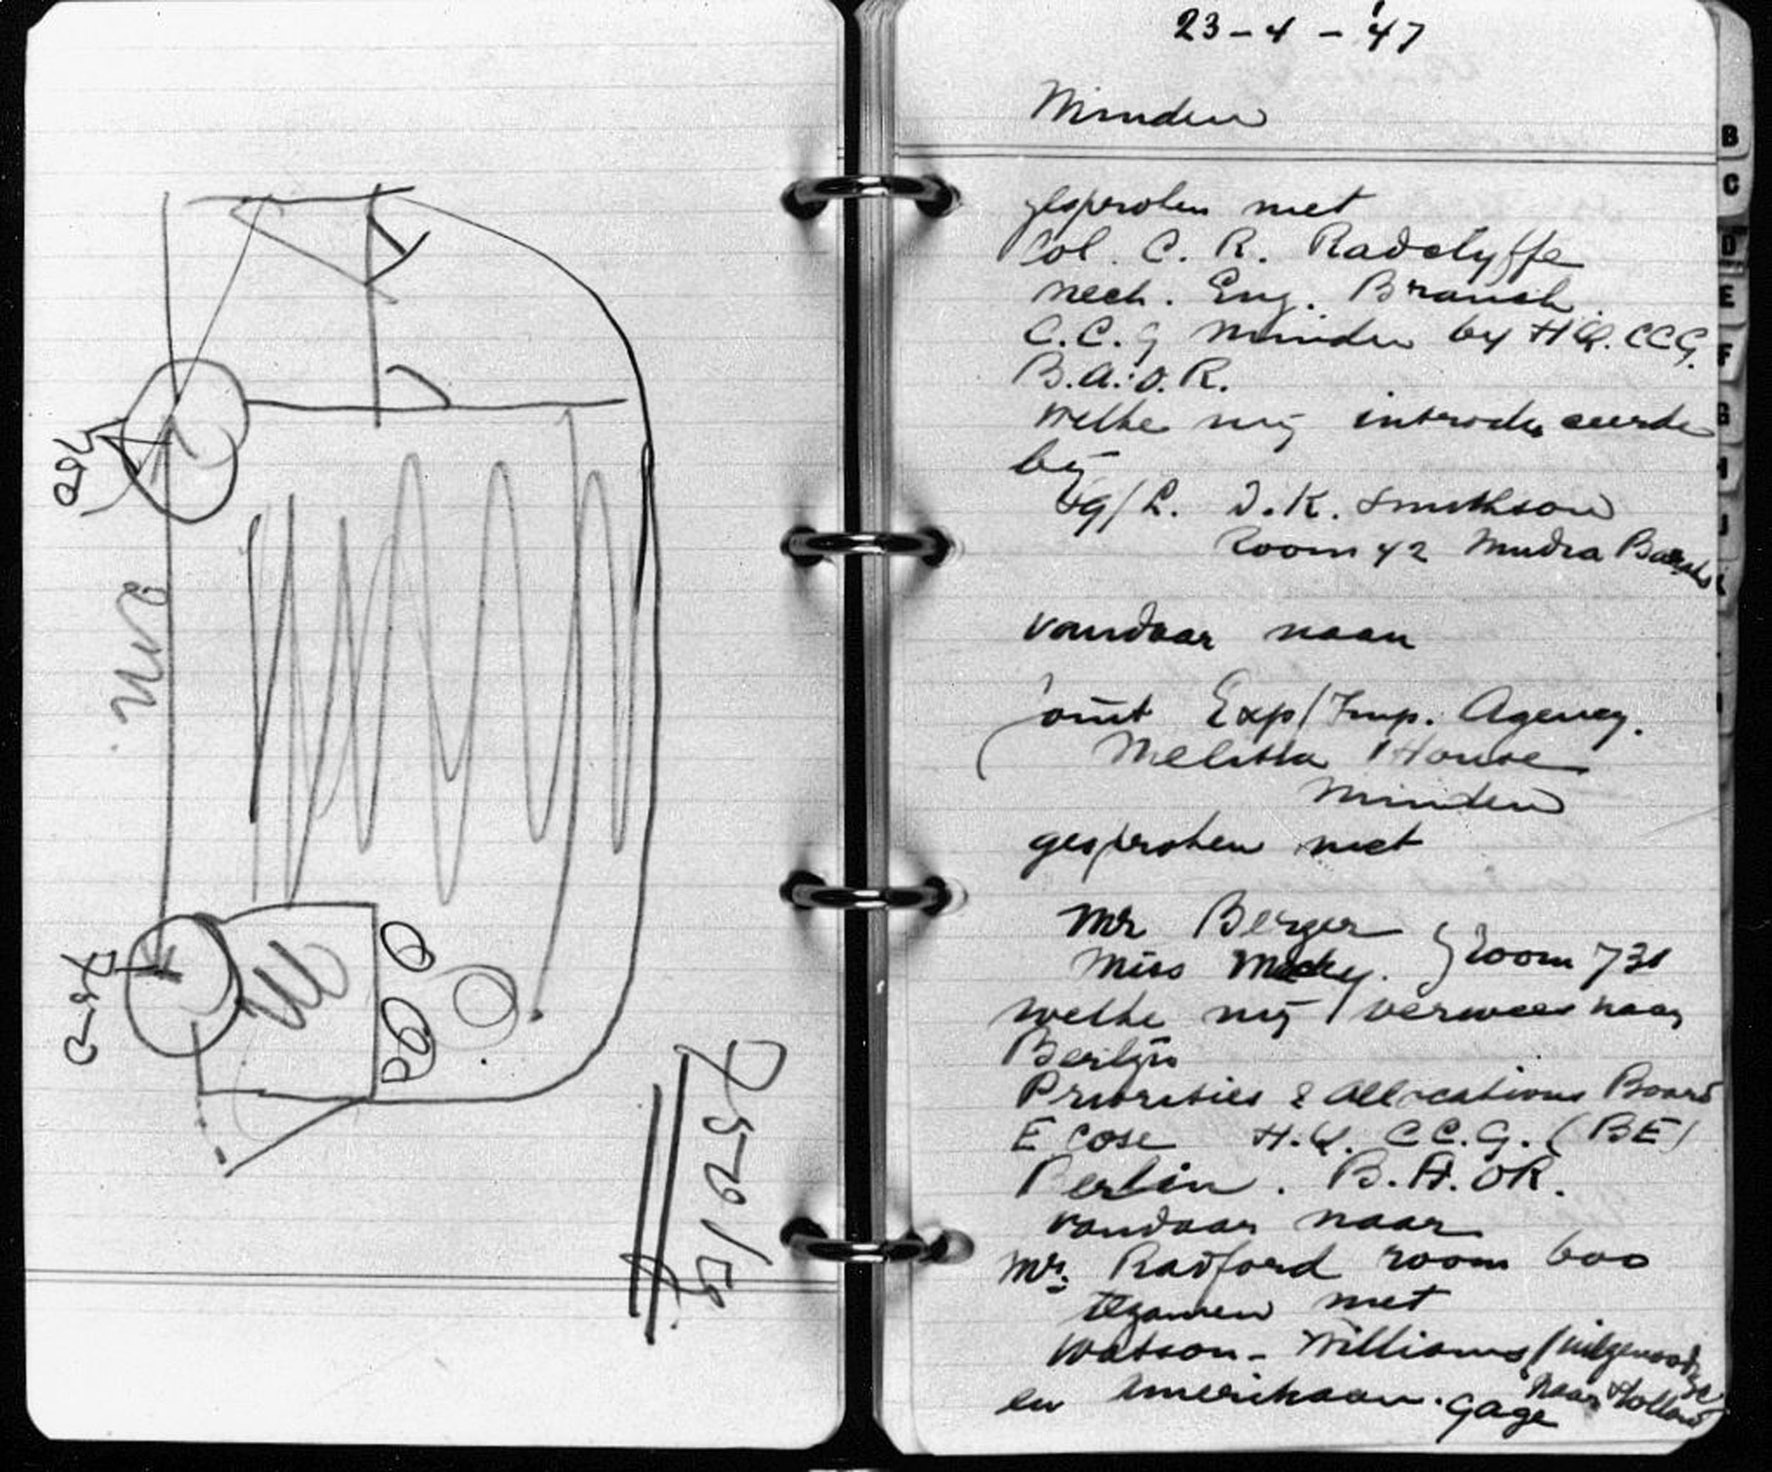 750
750
23-4-'47
Minden
gesproken met
Col. C. R. Radclyffe
Mech. Eng. Branch.
C.C.G Minden by HQ. CCG.
B.A.O.R.
Welke mij introduceerde
bij
Sq/L. D.K. Smithson
Room 42 Mudra Barracks
vandaar naar
Joint Exp/Imp. Agency.
Melitta House
Minden
gesproken met
Mr Berger
Miss } Room 731
welke mij verwees naar
Berlijn
Priorities & Allocations Board
E Cose H.Q. CC.G. (BE)
Berlin. B.A.OR.
vandaar naar
Mr. Radford room 600
tezamen met
Watson-Williams (uitgenoodigd
naar Holland
en Amerikaan. Gage
B
C
D
E
F
G
H
J
K